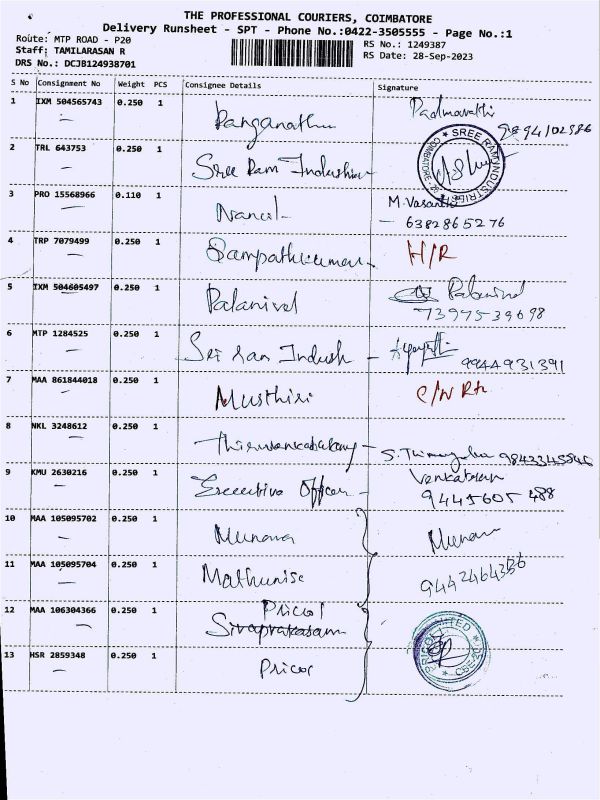 THE PROFESSIONAL COURIERS, COIMBATORE
Delivery Runsheet - SPT - Phone No.:0422-3505555 - Page No.:1
Route: MTP ROAD - P20
RS No.: 1249387
Staff: TAMILARASAN R
RS Date: 28-Sep-2023
DRS No.: DCJB124938701
S No Consignment No Weight PCS Consignee Details Signature
1 IXM 504565743 0.250 1 Ranganathan Padmavathi
2 TRL 643753 0.250 1 Sree Ram Industries SREE RAM INDUSTRIES COIMBATORE
3 PRO 15568966 0.110 1 Nancol M. Vasantha
6382865276
4 TRP 7079499 0.250 1 Sampathkumar H/R
5 IXM 504605497 0.250 1 Palanivel Palanivel
7397539698
6 MTP 1284525 0.250 1 Sri Ram Indush
9944931391
7 MAA 861844018 0.250 1 Musthiri
8 NKL 3248612 0.250 1
9 KMU 2630216 0.250 1 Executive Officer Venkatesan
9445605488
10 MAA 105095702 0.250 1 Munava
11 MAA 105095704 0.250 1 Mathunise
12 MAA 106304366 0.250 1 Pricol
Sivaprakasam
PRICOL LIMITED
13 HSR 2859348 0.250 1 Pricol